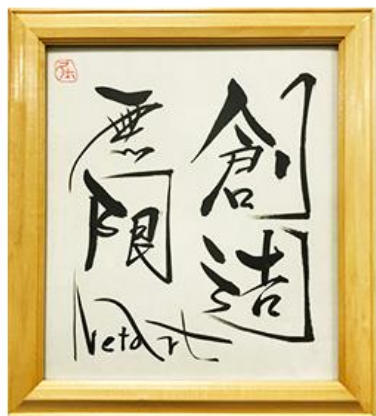 創造
無限
NetArt